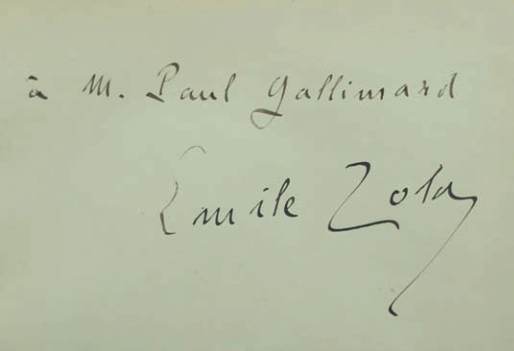 à M. Paul Gallimard
Emile Zola